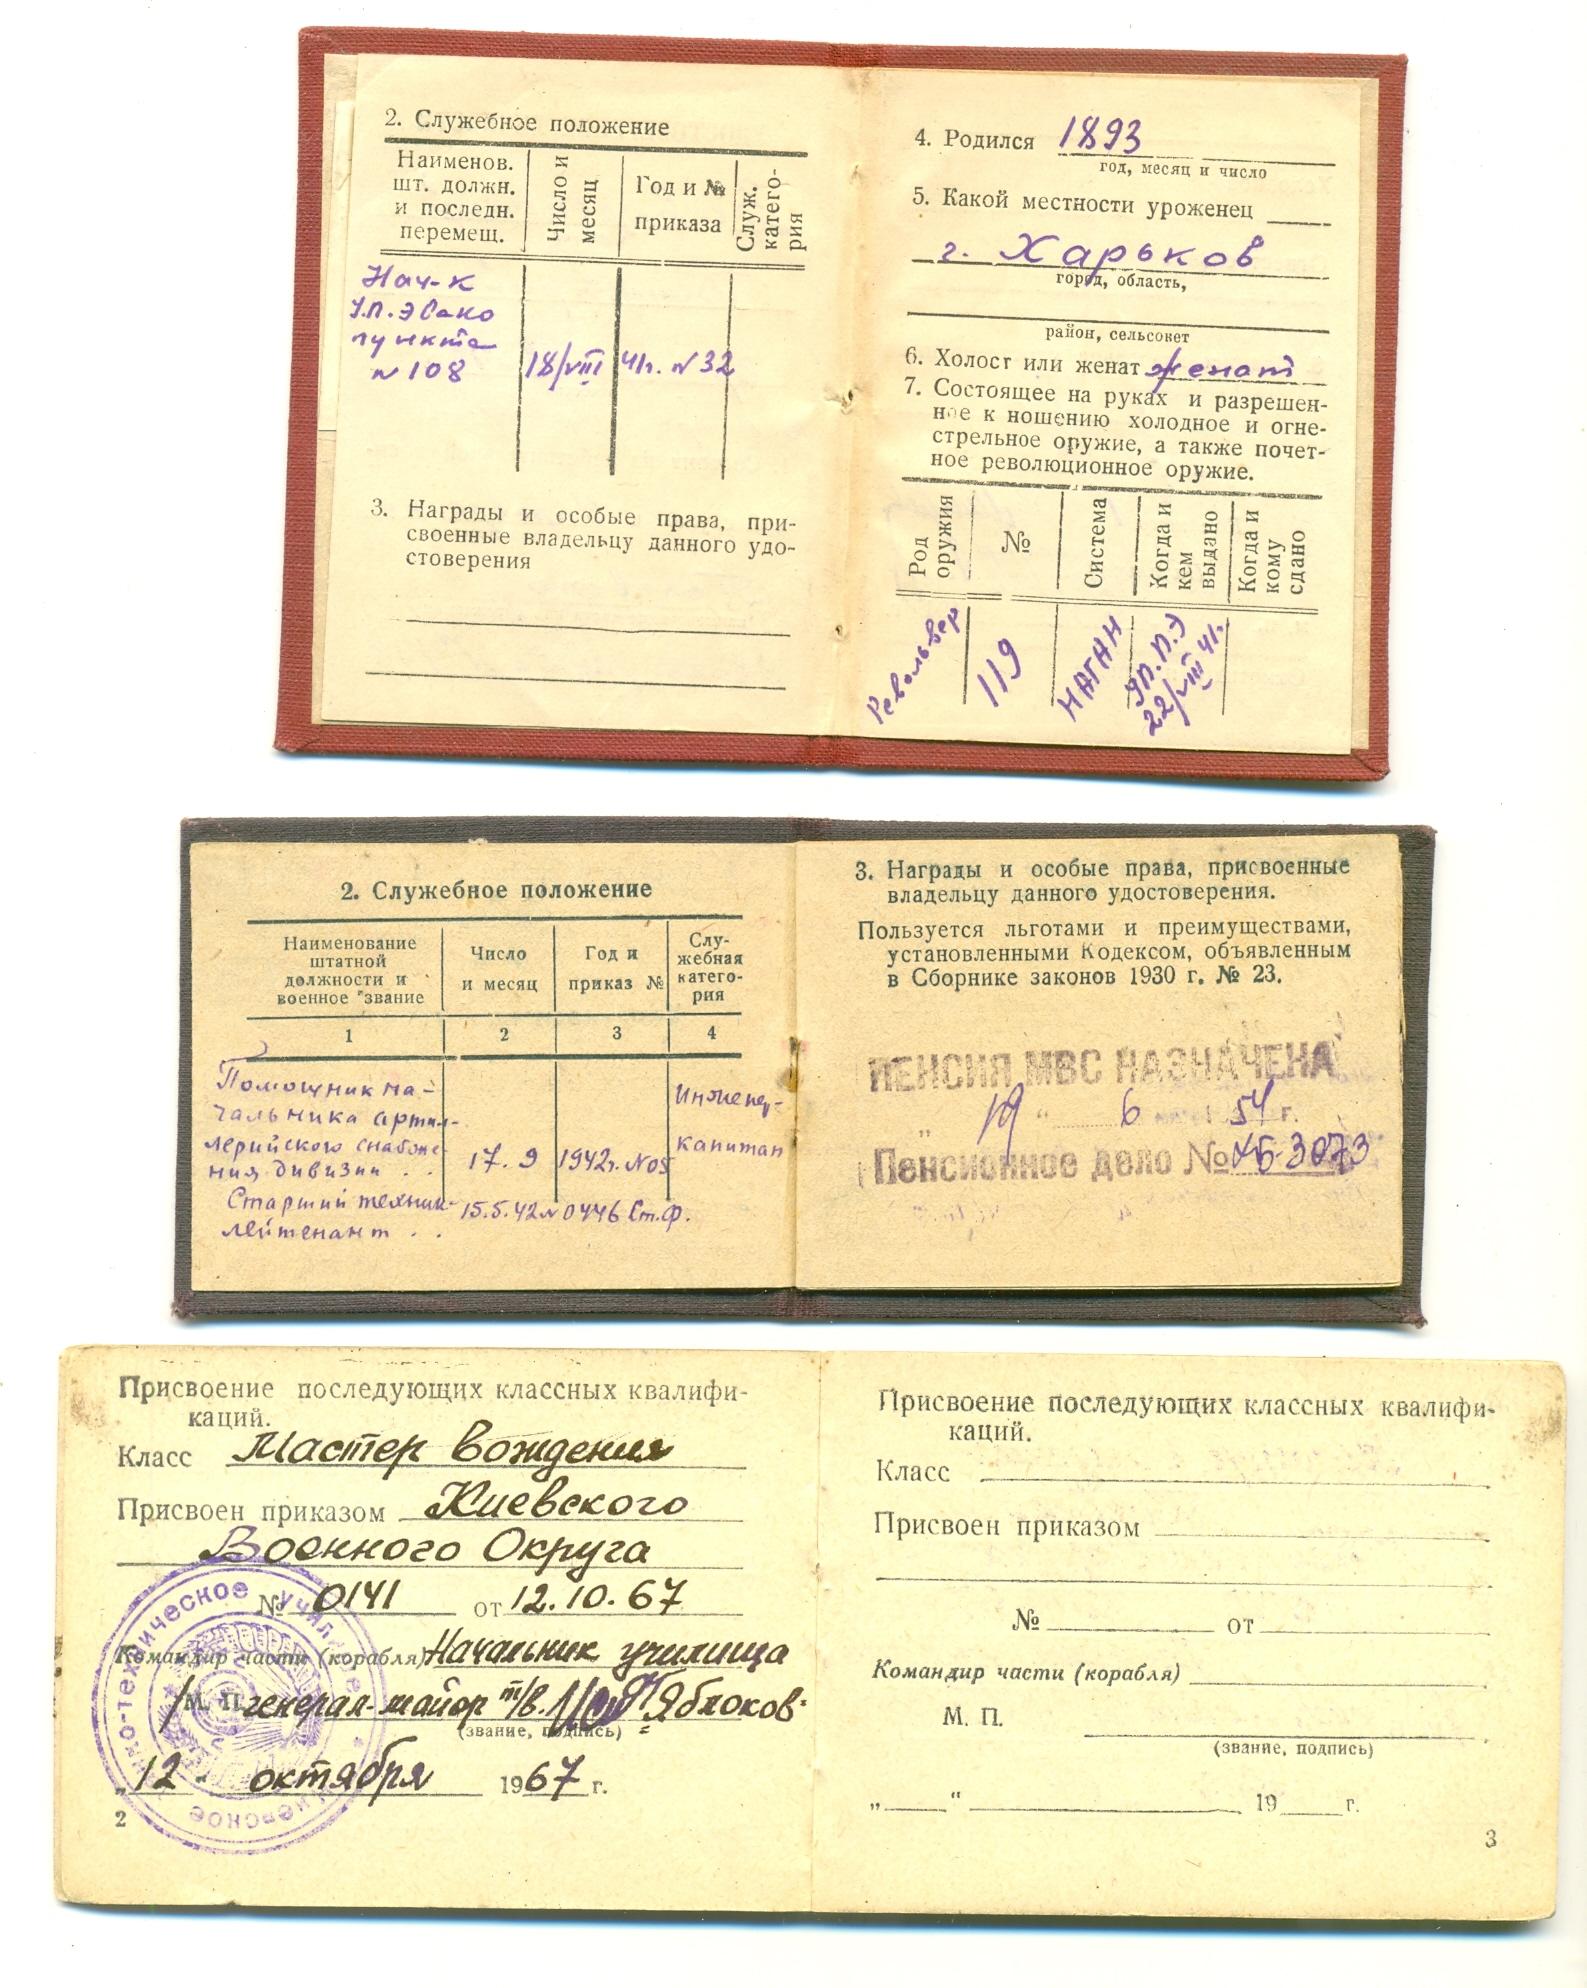 2. Служебное положение
Наименов.
шт. должн.
и последн.
перемещ.
Число и
месяц
Год и №
приказа
Служ.
катего-
рия
Нач-к
У.П. Эвако
пункта
№ 108
18/VIII
41г. № 32
3. Награды и особые права, при-
своенные владельцу данного удо-
стоверения
4. Родился 1893
год, месяц и число
5. Какой местности уроженец
г. Харьков
город, область,
район, сельсовет
6. Холост или женат женат
7. Состоящее на руках и разрешен-
ное к ношению холодное и огне-
стрельное оружие, а также почет-
ное революционное оружие.
Род
оружия
№
Система
Когда и
кем
выдано
Когда и
кому
сдано
Револьвер
119
НАГАН
УП.П.Э
22/VIII 41г.
2. Служебное положение
Наименование
штатной
должности и
военное звание
Число
и месяц
Год и
приказ №
Слу-
жебная
катего-
рия
1 2 3 4
Помощник на-
чальника артил-
лерийского снабже-
ния дивизии . .
17. 9
1942г. №05
Инженер-
капитан
Старший техник-
лейтенант . .
15.5.42 № 0446 Ст.Ф.
3. Награды и особые права, присвоенные
владельцу данного удостоверения.
Пользуется льготами и преимуществами,
установленными Кодексом, объявленным
в Сборнике законов 1930 г. № 23.
ПЕНСИЯ МВС НАЗНАЧЕНА
„19“ 6 1954 г.
Пенсионное дело № ХБ-3073
Присвоение последующих классных квалифи-
каций.
Класс Мастер вождения
Присвоен приказом Киевского
Военного Округа
№ 0141 от 12.10.67
Командир части (корабля) Начальник училища
М. П. генерал-майор т/в. Яблоков
(звание, подпись)
„12“ октября 1967 г.
2
Присвоение последующих классных квалифи-
каций.
Класс
Присвоен приказом
№ от
Командир части (корабля)
М. П.
(звание, подпись)
„ “ 19 г.
3